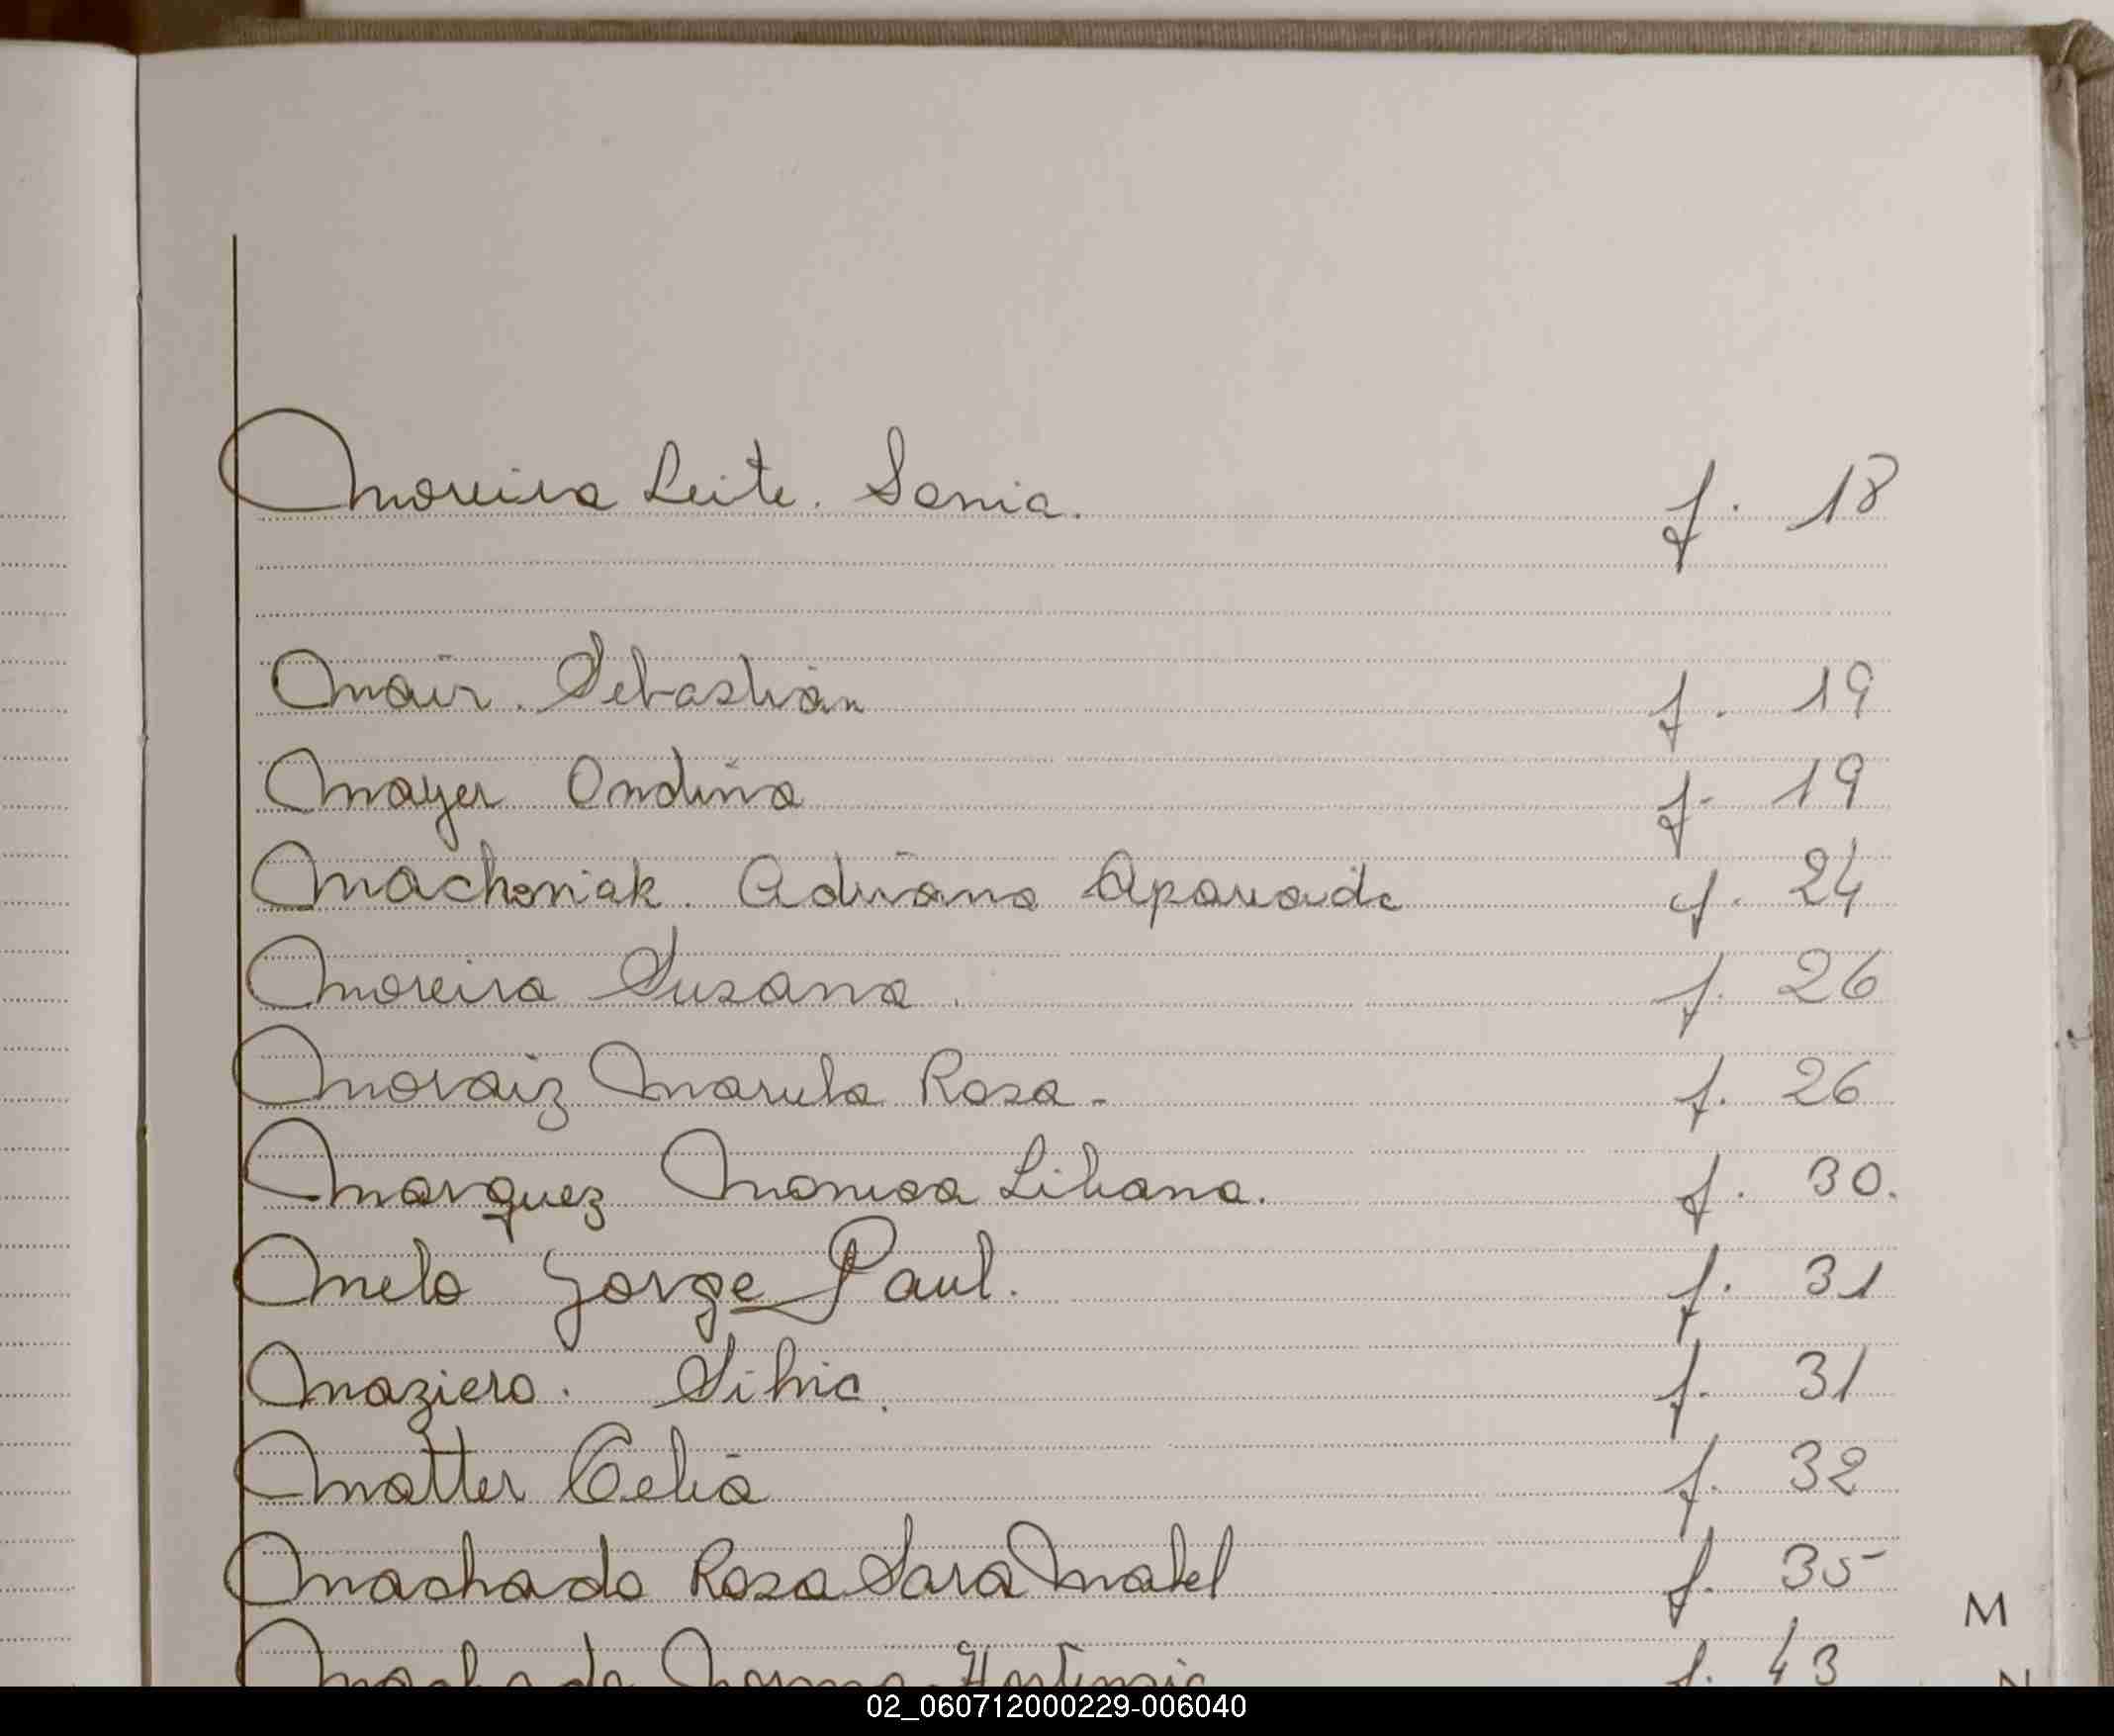 Moreira Leite. Sonia. f. 18
Mair. Sebastián f. 19
Mayer Ondina f. 19
Machoniak. Adriana Aparaida f. 24
Moreira Susana. f. 26
Moraiz Mariela Rosa - f. 26
Marquez Monica Liliana. f. 30.
Melo Jorge Paul. f. 31
Maziero. Silvia. f. 31
Matter Celia f. 32
Machado Rosa Sara Mabel f. 35
M
Machado Norma Hortensia f. 43
N
02_060712000229-006040